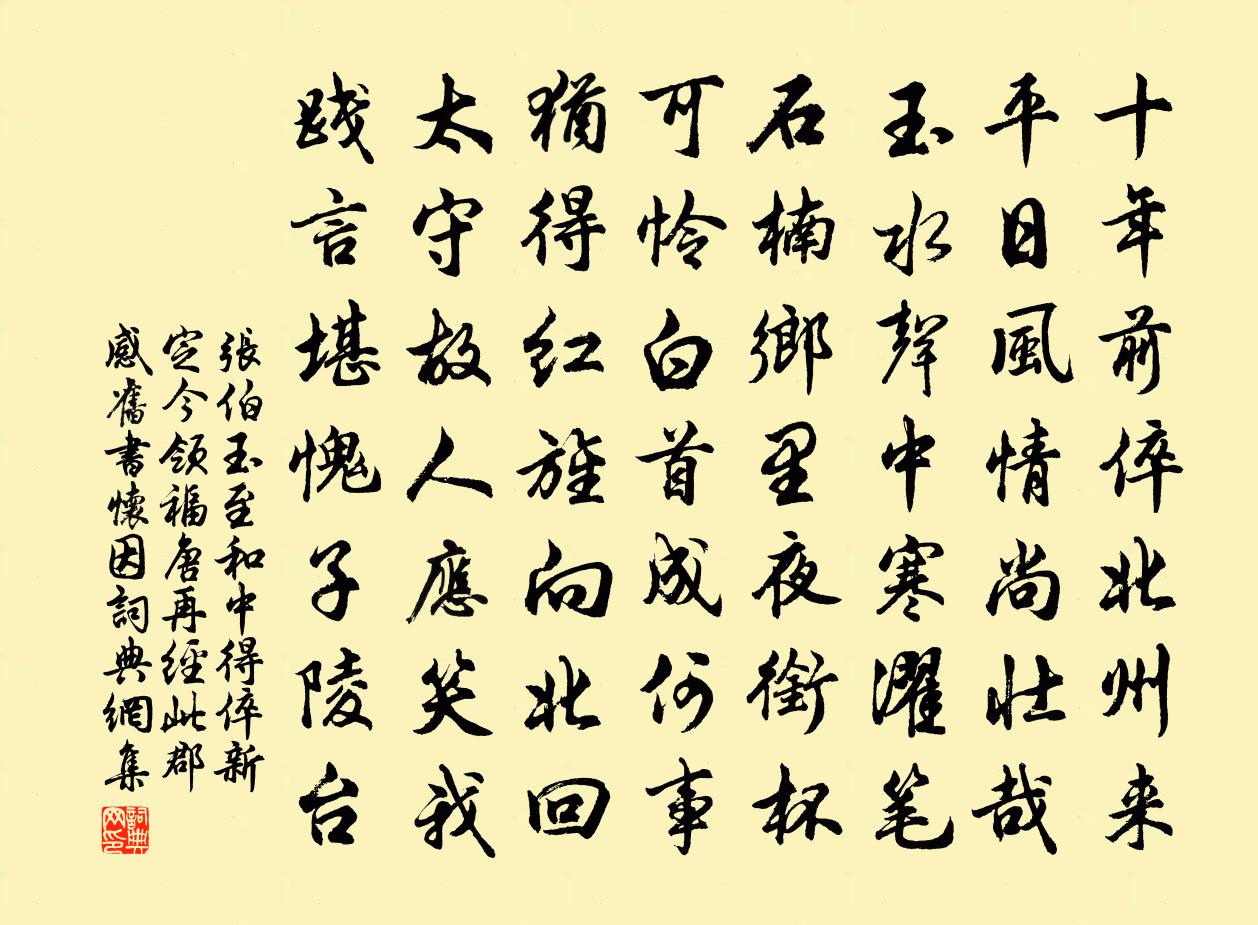 十年前倅北州来
平日風情尚壮哉
玉水聲中寒濯笔
石楠鄉里夜銜杯
可怜白首成何事
猶得红旌向北回
太守故人應笑我
践言堪愧子陵台
張伯玉至和中得倅新
定今領福唐再經此郡
感舊書懷因詞典網集
詞典